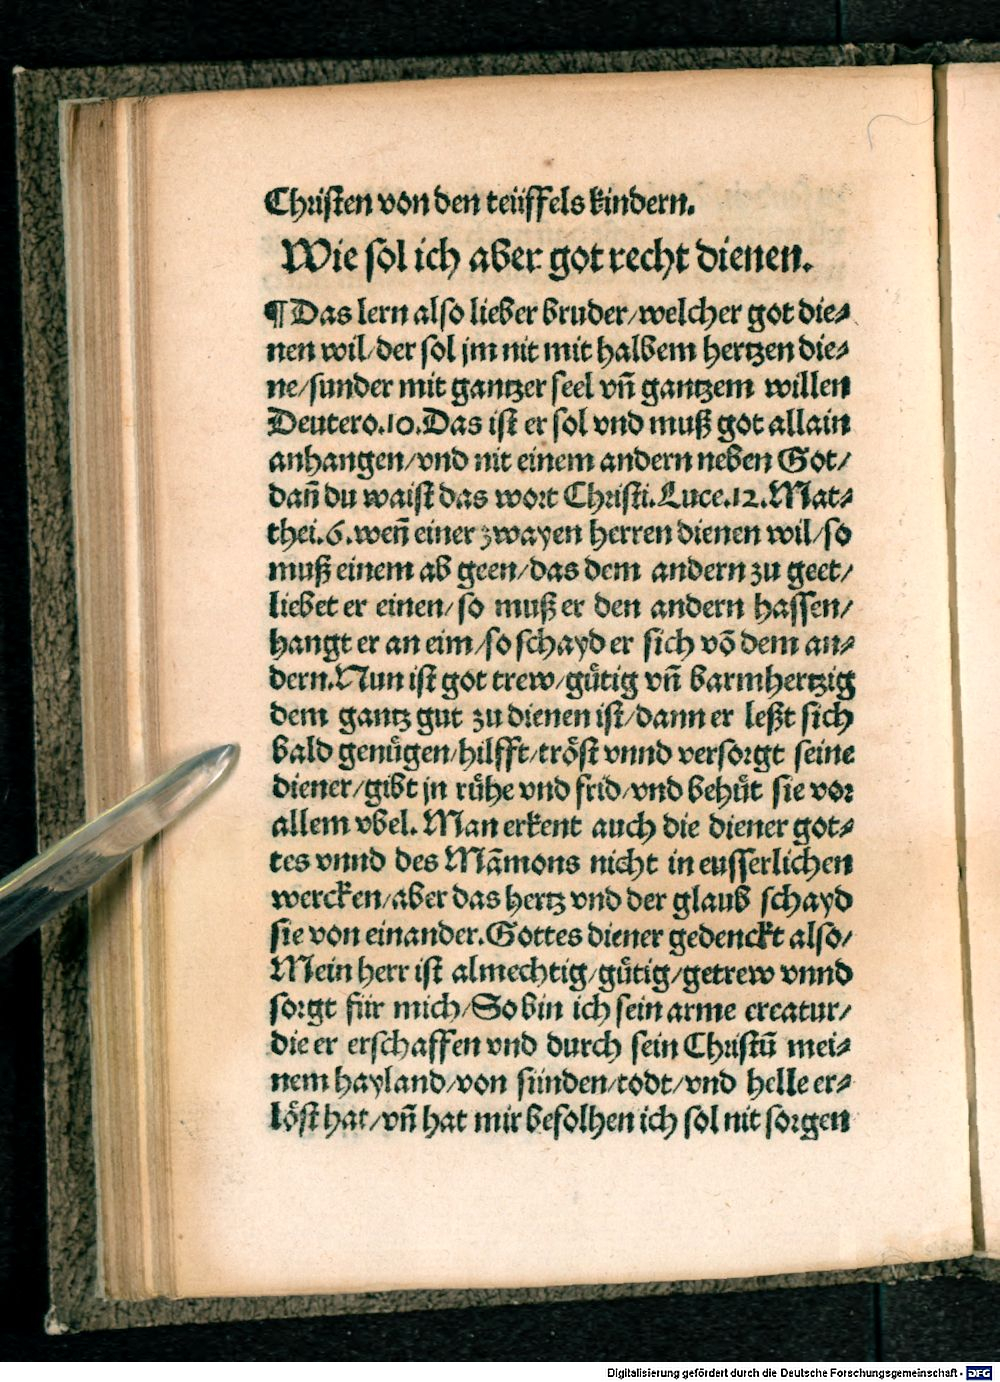 Christen von den teüffels kindern.
Wie sol ich aber got recht dienen.
¶ Das lern also lieber bruder/welcher got die⸗
nen wil/der sol jm nit mit halbem hertzen die⸗
ne/sunder mit gantzer seel vñ gantzem willen
Deutero.10.Das ist er sol vnd muß got allain
anhangen/vnd nit einem andern neben Got/
dañ du waist das wort Christi.Luce.12.Mat⸗
thei.6.weñ einer zwayen herren dienen wil/so
muß einem ab geen/das dem andern zu geet/
liebet er einen/so muß er den andern hassen/
hangt er an eim/so schayd er sich võ dem an⸗
dern.Nun ist got trew/gůtig vñ barmhertzig
dem gantz gut zu dienen ist/dann er leßt sich
bald genůgen/hilfft/tröst vnnd versorgt seine
diener/gibt jn růhe vnd frid/vnd behůt sie vor
allem vbel. Man erkent auch die diener got⸗
tes vnnd des Mãmons nicht in eusserlichen
wercken/aber das hertz vnd der glaub schayd
sie von einander.Gottes diener gedenckt also/
Mein herr ist almechtig/gůtig/getrew vnnd
sorgt für mich/So bin ich sein arme creatur/
die er erschaffen vnd durch sein Christũ mei⸗
nem hayland/von sünden/todt/vnd helle er⸗
löst hat/vñ hat mir befolhen ich sol nit sorgen
Digitalisierung gefördert durch die Deutsche Forschungsgemeinschaft - DFG